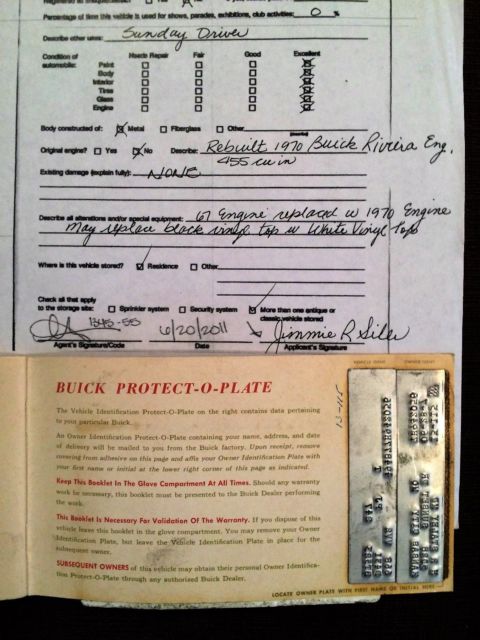 Percentage of time this vehicle is used for shows, parades, exhibitions, club activities: 0 %
Describe other uses: Sunday Driver
Condition of automobile: Needs Repair Fair Good Excellent
Paint
Body
Interior
Tires
Glass
Engine
Body constructed of: Metal Fiberglass Other
Original engine? Yes No Describe: Rebuilt 1970 Buick Riviera Eng.
455 cu in
Existing damage (explain fully): NONE
Describe all alterations and/or special equipment: 67 Engine replaced w 1970 Engine
May replace black vinyl top w White Vinyl Top
Where is this vehicle stored? Residence Other
Check all that apply to the storage site: Sprinkler system Security system More than one antique or classic vehicle stored
1343-55 6/20/2011 Jimmie R Siler
Agent's Signature/Code Date Applicant's Signature
BUICK PROTECT-O-PLATE
The Vehicle Identification Protect-O-Plate on the right contains data pertaining
to your particular Buick.
An Owner Identification Protect-O-Plate containing your name, address, and date
of delivery will be mailed to you from the Buick factory. Upon receipt, remove
covering from adhesive on this page and affix your Owner Identification Plate with
your first name or initial at the lower right corner of this page as indicated.
Keep This Booklet In The Glove Compartment At All Times. Should any warranty
work be necessary, this booklet must be presented to the Buick Dealer performing
the work.
This Booklet Is Necessary For Validation Of The Warranty. If you dispose of this
vehicle leave this booklet in the glove compartment. You may remove your Owner
Identification Plate, but leave the Vehicle Identification Plate in place for the
subsequent owner.
SUBSEQUENT OWNERS of this vehicle may obtain their personal Owner Identifica-
tion Protect-O-Plate through any authorized Buick Dealer.
LOCATE OWNER PLATE WITH FIRST NAME OR INITIAL HERE